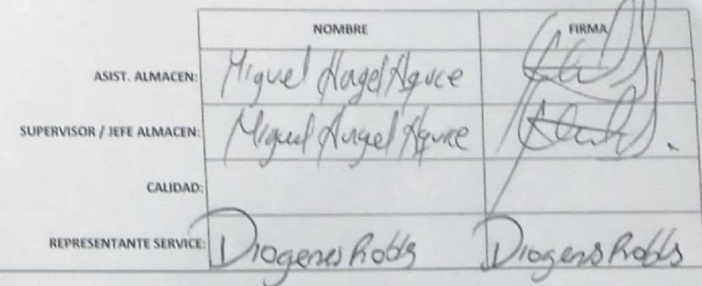 NOMBRE FIRMA
ASIST. ALMACEN: Miguel Angel
SUPERVISOR / JEFE ALMACEN: Miguel Angel
CALIDAD:
REPRESENTANTE SERVICE: Diogenes Robls Diogens Robls